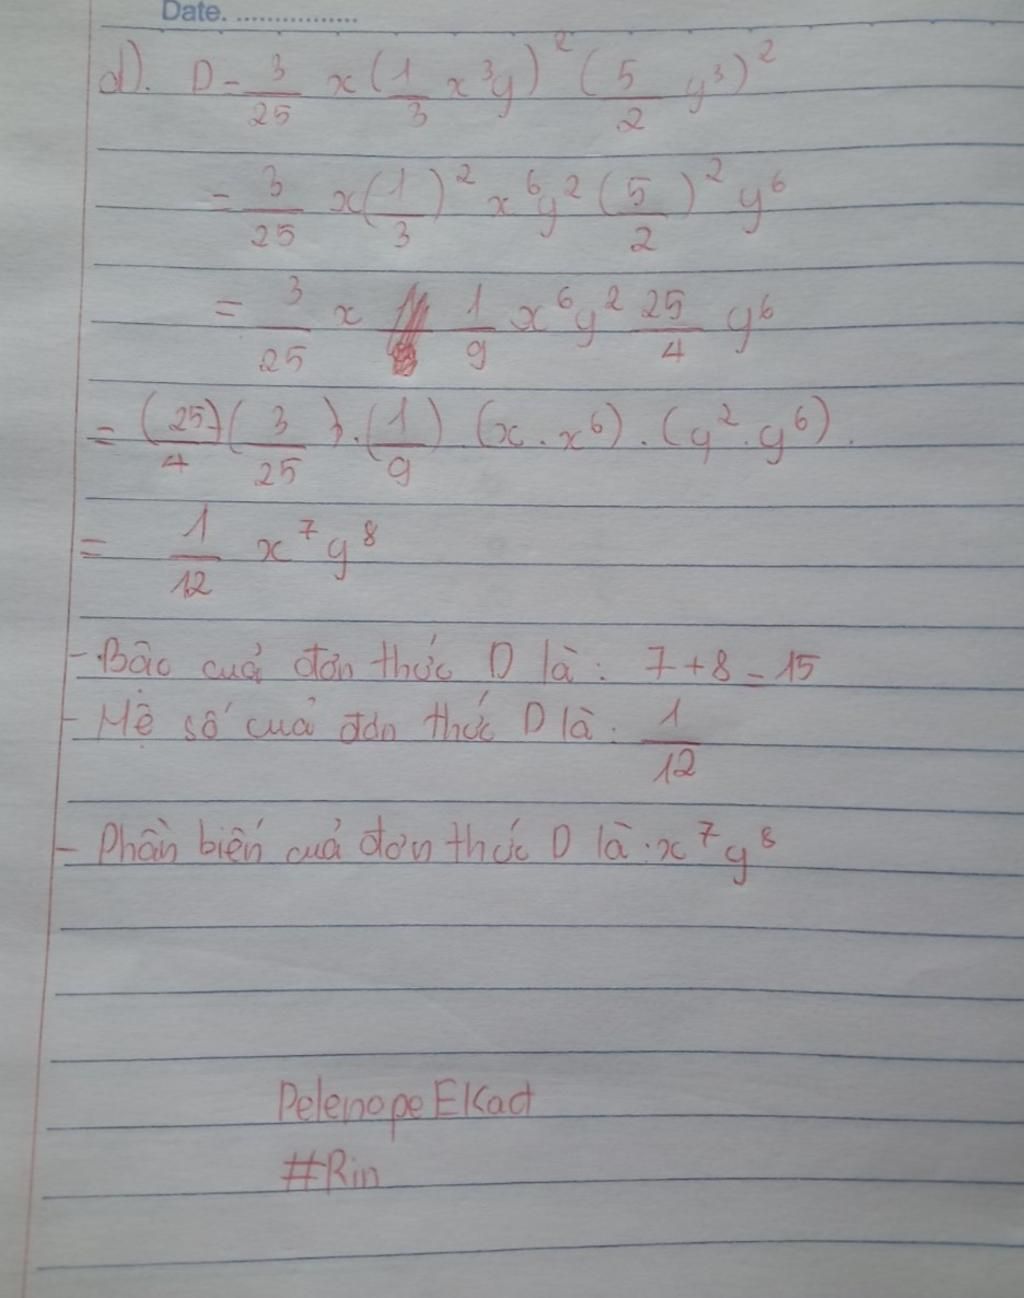 Date. ................
d). D = 3/25 x (1/3 x^3y)^2 (5/2 y^3)^2
= 3/25 x (1/3)^2 x^6y^2 (5/2)^2 y^6
= 3/25 x 1/9 x^6y^2 25/4 y^6
= (25/4) (3/25). (1/9). (x . x^6) . (y^2 . y^6).
= 1/12 x^7 y^8
- Bâc cuả đơn thức D là: 7 + 8 = 15
- Hệ số cuả đơn thức D là: 1/12
- Phần biến cuả đơn thức D là: x^7 y^8
Pelenope EKad
#Rin